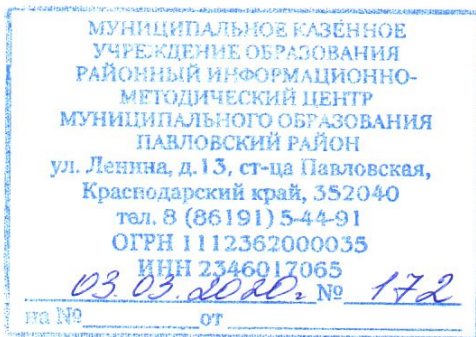 МУНИЦИПАЛЬНОЕ КАЗЕННОЕ
УЧРЕЖДЕНИЕ ОБРАЗОВАНИЯ
РАЙОННЫЙ ИНФОРМАЦИОННО-
МЕТОДИЧЕСКИЙ ЦЕНТР
МУНИЦИПАЛЬНОГО ОБРАЗОВАНИЯ
ПАВЛОВСКИЙ РАЙОН
ул. Ленина, д.13, ст-ца Павловская,
Краснодарский край, 352040
тел. 8 (86191) 5-44-91
ОГРН 1112362000035
ИНН 2346017065
03.03.2020г № 172
на №________от________